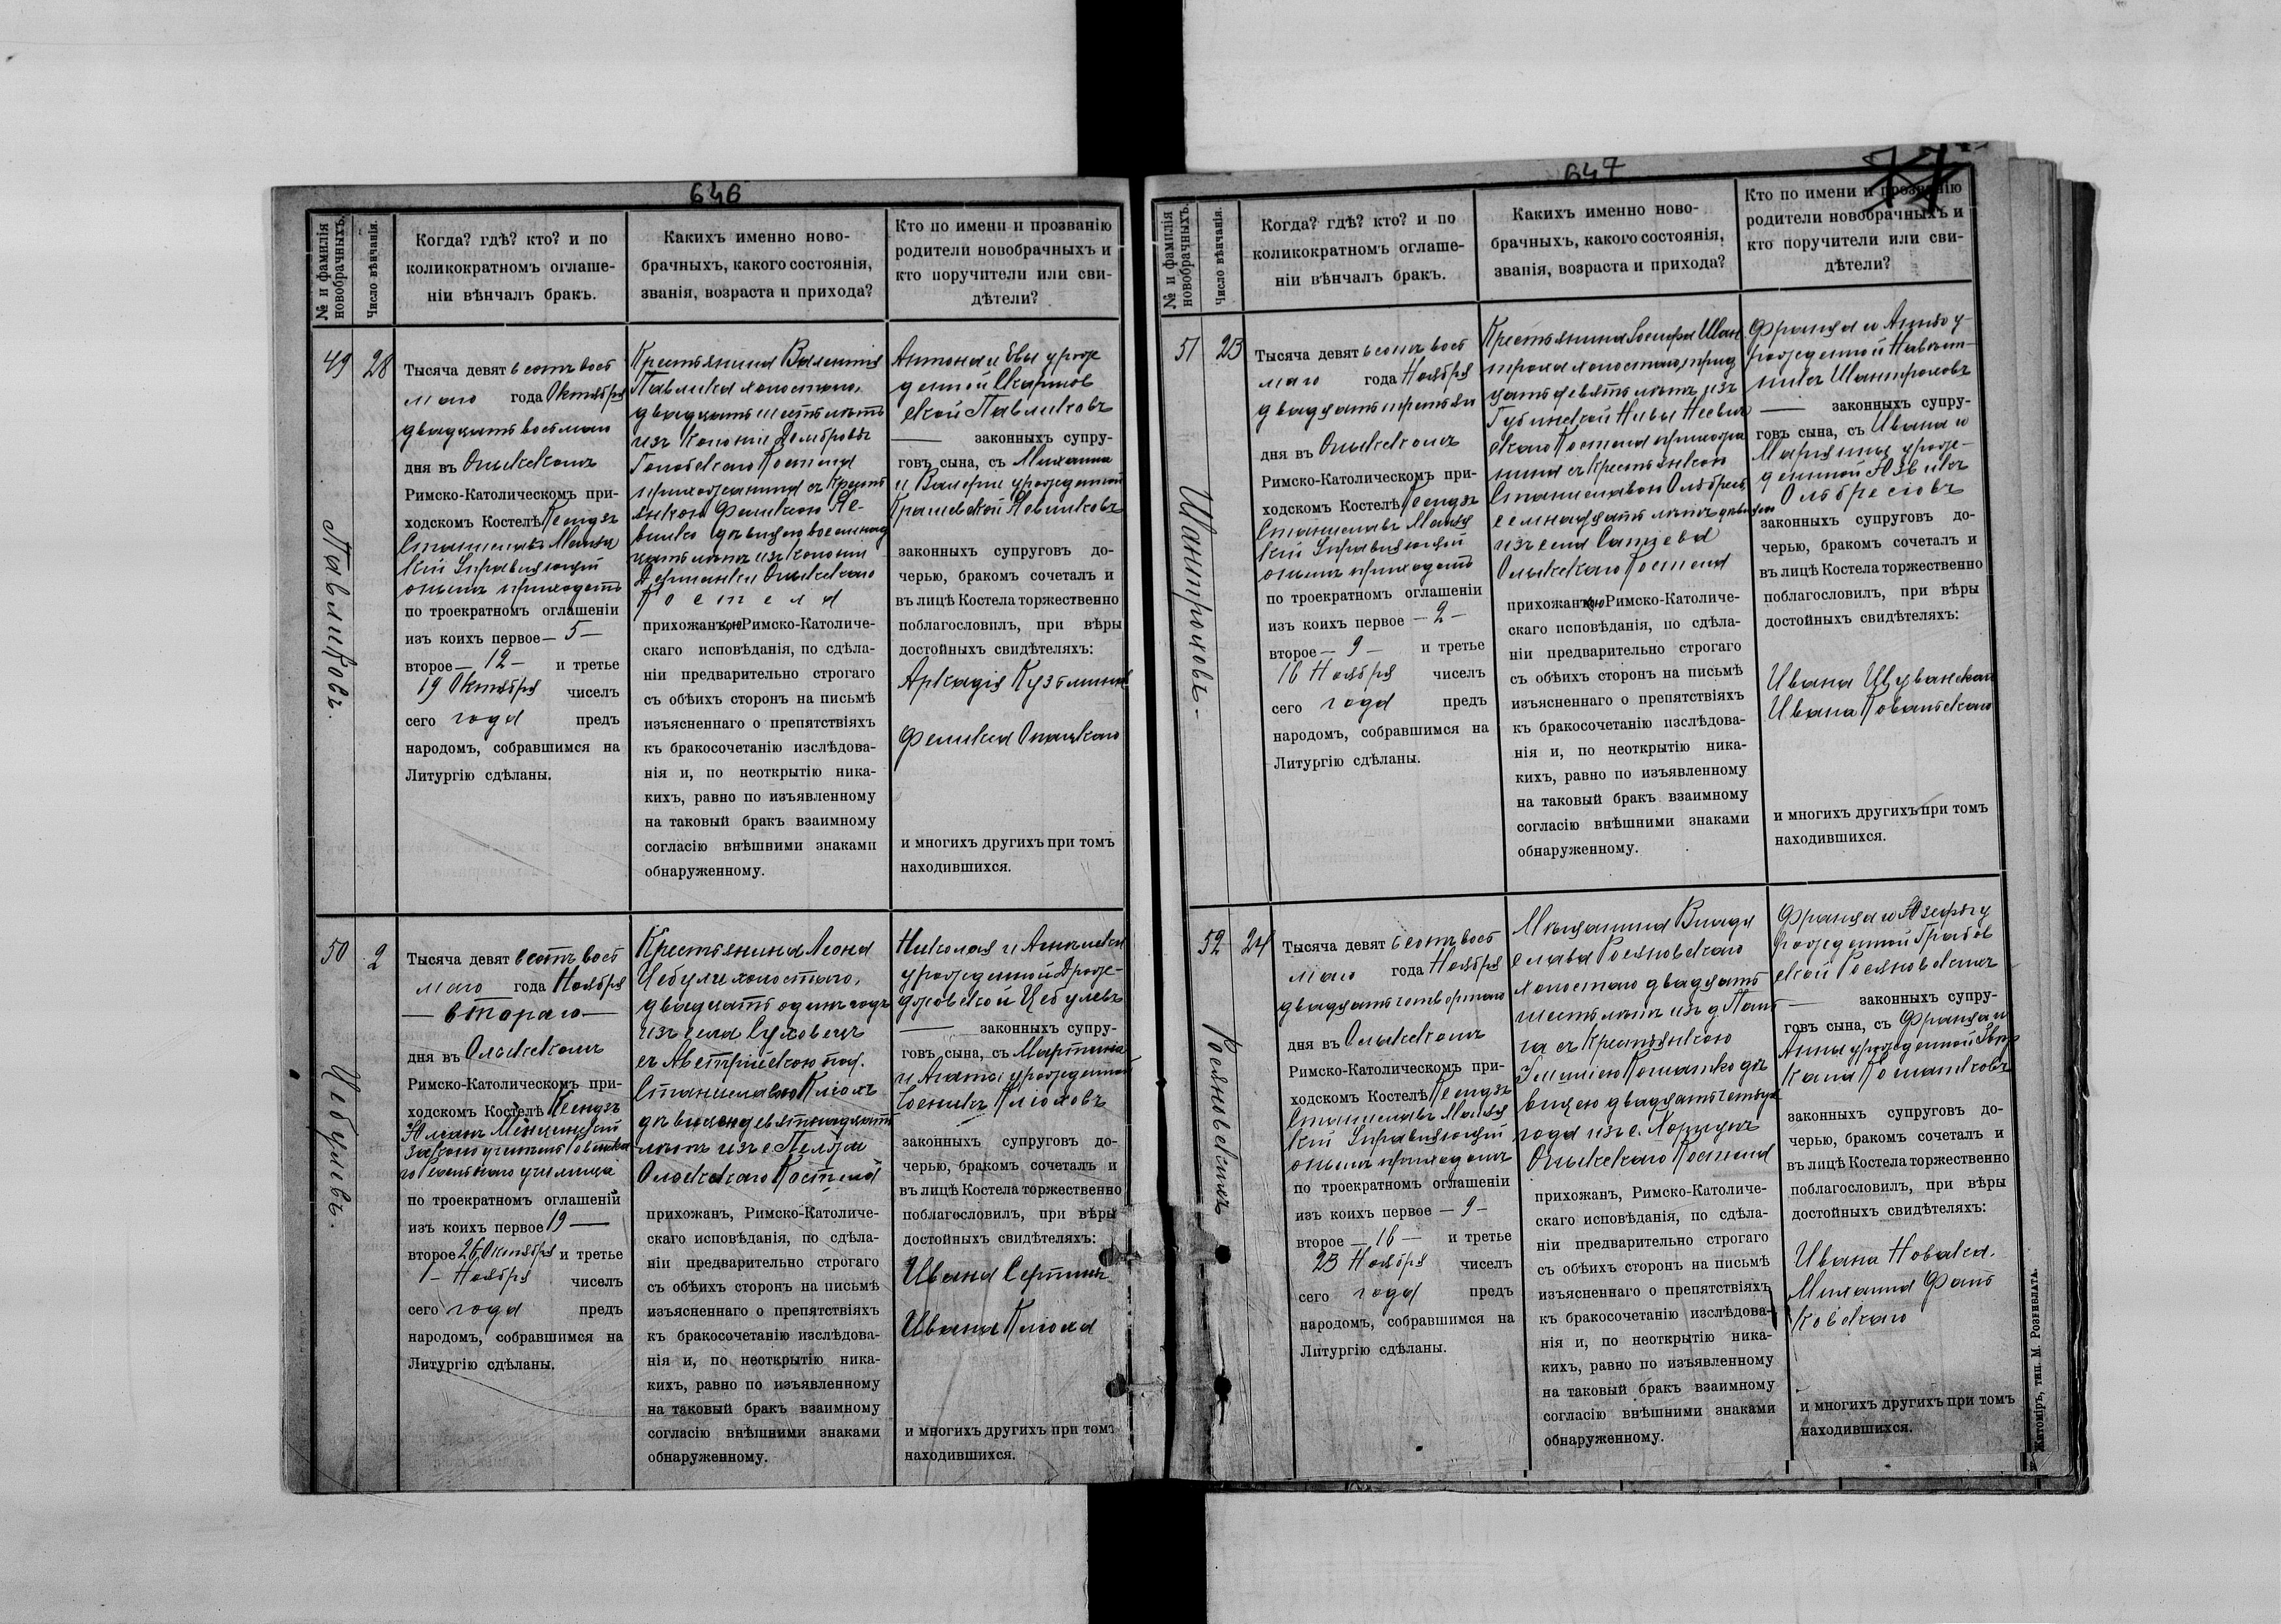 646
№ и фамилія новобрачныхъ.
Число вѣнчанія.
Когда? гдѣ? кто? и по
коликократномъ оглаше-
ніи вѣнчалъ бракъ.
Какихъ именно ново-
брачныхъ, какого состоянія,
званія, возраста и прихода?
Кто по имени и прозванію
родители новобрачныхъ и
кто поручители или сви-
дѣтели?
49
Павликовъ.
28
Тысяча девятьсотъ вось
маго года Октября
двадцать восьмаго
дня въ Олыкскомъ
Римско-Католическомъ при-
ходскомъ Костелѣ Ксендзъ
Станиславъ
кій Управляющій
онымъ приходомъ
по троекратномъ оглашеніи
изъ коихъ первое — 5 —
второе — 12 — и третье
19 Октября чиселъ
сего года предъ
народомъ, собравшимся на
Литургію сдѣланы.
Крестьянина Валентія
Павлика холостаго,
двадцать шесть лѣтъ
изъ колоніи Домбровы
Костела
прихожанина съ Кресть
янкою Феликсою Не-
влико дѣвицею восемнад
цать лѣтъ изъ колоніи
Дерманки Олыкскаго
Костела
прихожанкою Римско-Католиче-
скаго исповѣданія, по сдѣла-
ніи предварительно строгаго
съ обѣихъ сторонъ на письмѣ
изъясненнаго о препятствіяхъ
къ бракосочетанію изслѣдова-
нія и, по неоткрытію ника-
кихъ, равно по изъявленному
на таковый бракъ взаимному
согласію внѣшними знаками
обнаруженному.
Антона и Евы урож
денной Скарпов
ской Павликовъ
— законныхъ супру-
говъ сына, съ Михаила
и Валеріи урожденной
Крашевской Невликовъ
законныхъ супруговъ до-
черью, бракомъ сочеталъ и
въ лицѣ Костела торжественно
поблагословилъ, при вѣры
достойныхъ свидѣтеляхъ:
Аркадія Кузьмина
Феликса Опацкаго
и многихъ другихъ при томъ
находившихся.
50
Цебулевъ.
2
Тысяча девятьсотъ вось
маго года Ноября
— втораго —
дня въ Олыкскомъ
Римско-Католическомъ при-
ходскомъ Костелѣ Ксендзъ
Юліанъ
законоучитель Ровенска
го Реальнаго училища
по троекратномъ оглашеніи
изъ коихъ первое 19 —
второе 26 Октября и третье
1 – Ноября чиселъ
сего года предъ
народомъ, собравшимся на
Литургію сдѣланы.
Крестьянина Леона
Цебули холостаго,
двадцать одинъ годъ
изъ села Суховецъ
съ Австрійскою под.
Станиславою Клюкъ
дѣвицею девятнадцать
лѣтъ изъ с. Пелжи
Олыкскаго Костела
прихожанъ, Римско-Католиче-
скаго исповѣданія, по сдѣла-
ніи предварительно строгаго
съ обѣихъ сторонъ на письмѣ
изъясненнаго о препятствіяхъ
къ бракосочетанію изслѣдова-
нія и, по неоткрытію ника-
кихъ, равно по изъявленному
на таковый бракъ взаимному
согласію внѣшними знаками
обнаруженному.
Николая и
урожденной Дрож-
джовской Цебулевъ
— законныхъ супру-
говъ сына, съ Мартина
и Агаты урожденной
Клюковъ
законныхъ супруговъ до-
черью, бракомъ сочеталъ и
въ лицѣ Костела торжественно
поблагословилъ, при вѣры
достойныхъ свидѣтеляхъ:
Ивана
Ивана Клюка
и многихъ другихъ при томъ
находившихся.
647
№ и фамилія новобрачныхъ.
Число вѣнчанія.
Когда? гдѣ? кто? и по
коликократномъ оглаше-
ніи вѣнчалъ бракъ.
Какихъ именно ново-
брачныхъ, какого состоянія,
званія, возраста и прихода?
Кто по имени и прозванію
родители новобрачныхъ и
кто поручители или сви-
дѣтели?
51
Шантроховъ.
23
Тысяча девятьсотъ вось
маго года Ноября
двадцать третья
дня въ Олыкскомъ
Римско-Католическомъ при-
ходскомъ Костелѣ Ксендзъ
Станиславъ
кій Управляющій
онымъ приходомъ
по троекратномъ оглашеніи
изъ коихъ первое — 2 —
второе — 9 — и третье
16 Ноября чиселъ
сего года предъ
народомъ, собравшимся на
Литургію сдѣланы.
Крестьянина Іосифа Шан
троха холостаго, трид
цать девять лѣтъ изъ
Губинской Нивы Несвич
скаго Костела прихожа
нина съ Крестьянкою
Станиславою Ольбресъ
семнадцать лѣтъ дѣвицею
изъ села
Олыкскаго Костела
прихожанкою Римско-Католиче-
скаго исповѣданія, по сдѣла-
ніи предварительно строгаго
съ обѣихъ сторонъ на письмѣ
изъясненнаго о препятствіяхъ
къ бракосочетанію изслѣдова-
нія и, по неоткрытію ника-
кихъ, равно по изъявленному
на таковый бракъ взаимному
согласію внѣшними знаками
обнаруженному.
Франца и Анны у
рожденной
Шантроховъ
— законныхъ супру-
говъ сына, съ Ивана и
Маріанны урож-
денной Юзвикъ
Ольбресіовъ
законныхъ супруговъ до-
черью, бракомъ сочеталъ и
въ лицѣ Костела торжественно
поблагословилъ, при вѣры
достойныхъ свидѣтеляхъ:
Ивана
Ивана Ковальскаго
и многихъ другихъ при томъ
находившихся.
52
Росяновскихъ
24
Тысяча девятьсотъ вось
маго года Ноября
двадцать четвертаго
дня въ Олыкскомъ
Римско-Католическомъ при-
ходскомъ Костелѣ Ксендзъ
Станиславъ
кій Управляющій
онымъ приходомъ
по троекратномъ оглашеніи
изъ коихъ первое — 9 —
второе — 16 — и третье
23 Ноября чиселъ
сего года предъ
народомъ, собравшимся на
Литургію сдѣланы.
Мѣщанина Влади
слава Росяновскаго
холостаго двадцать
шесть лѣтъ изъ д.
съ Крестьянкою
Эмиліею Комашко дѣ
вицею двадцать четыре
года изъ с.
Олыкскаго Костела
прихожанъ, Римско-Католиче-
скаго исповѣданія, по сдѣла-
ніи предварительно строгаго
съ обѣихъ сторонъ на письмѣ
изъясненнаго о препятствіяхъ
къ бракосочетанію изслѣдова-
нія и, по неоткрытію ника-
кихъ, равно по изъявленному
на таковый бракъ взаимному
согласію внѣшними знаками
обнаруженному.
Франца и Юзефы у
рожденной Грабов
ской Росяновскихъ
— законныхъ супру-
говъ сына, съ Франца и
Анны урожденной
Комашковъ
законныхъ супруговъ до-
черью, бракомъ сочеталъ и
въ лицѣ Костела торжественно
поблагословилъ, при вѣры
достойныхъ свидѣтеляхъ:
Ивана Новака.
Михаила Фаль
ковскаго
и многихъ другихъ при томъ
находившихся.
Житоміръ, тип. М. Розенблата.